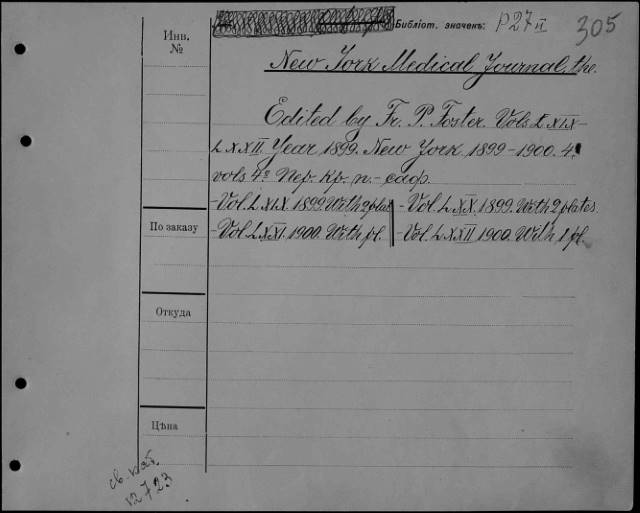 Библіот. значекъ: P27 II 305
Инв.
№
New York Medical Journal, the.
Edited by Fr. P. Foster. Vols LXIX-
LXXII. Year 1899. New York 1899-1900. 4
vols 4º Пер. кр. п.-саф.
- Vol. LXIX. 1899. With 2 plat. - Vol. LXX. 1899. With 2 plates.
По заказу
- Vol. LXXI. 1900. With pl. - Vol. LXXII 1900. With 1 pl.
Откуда
Цѣна
12723